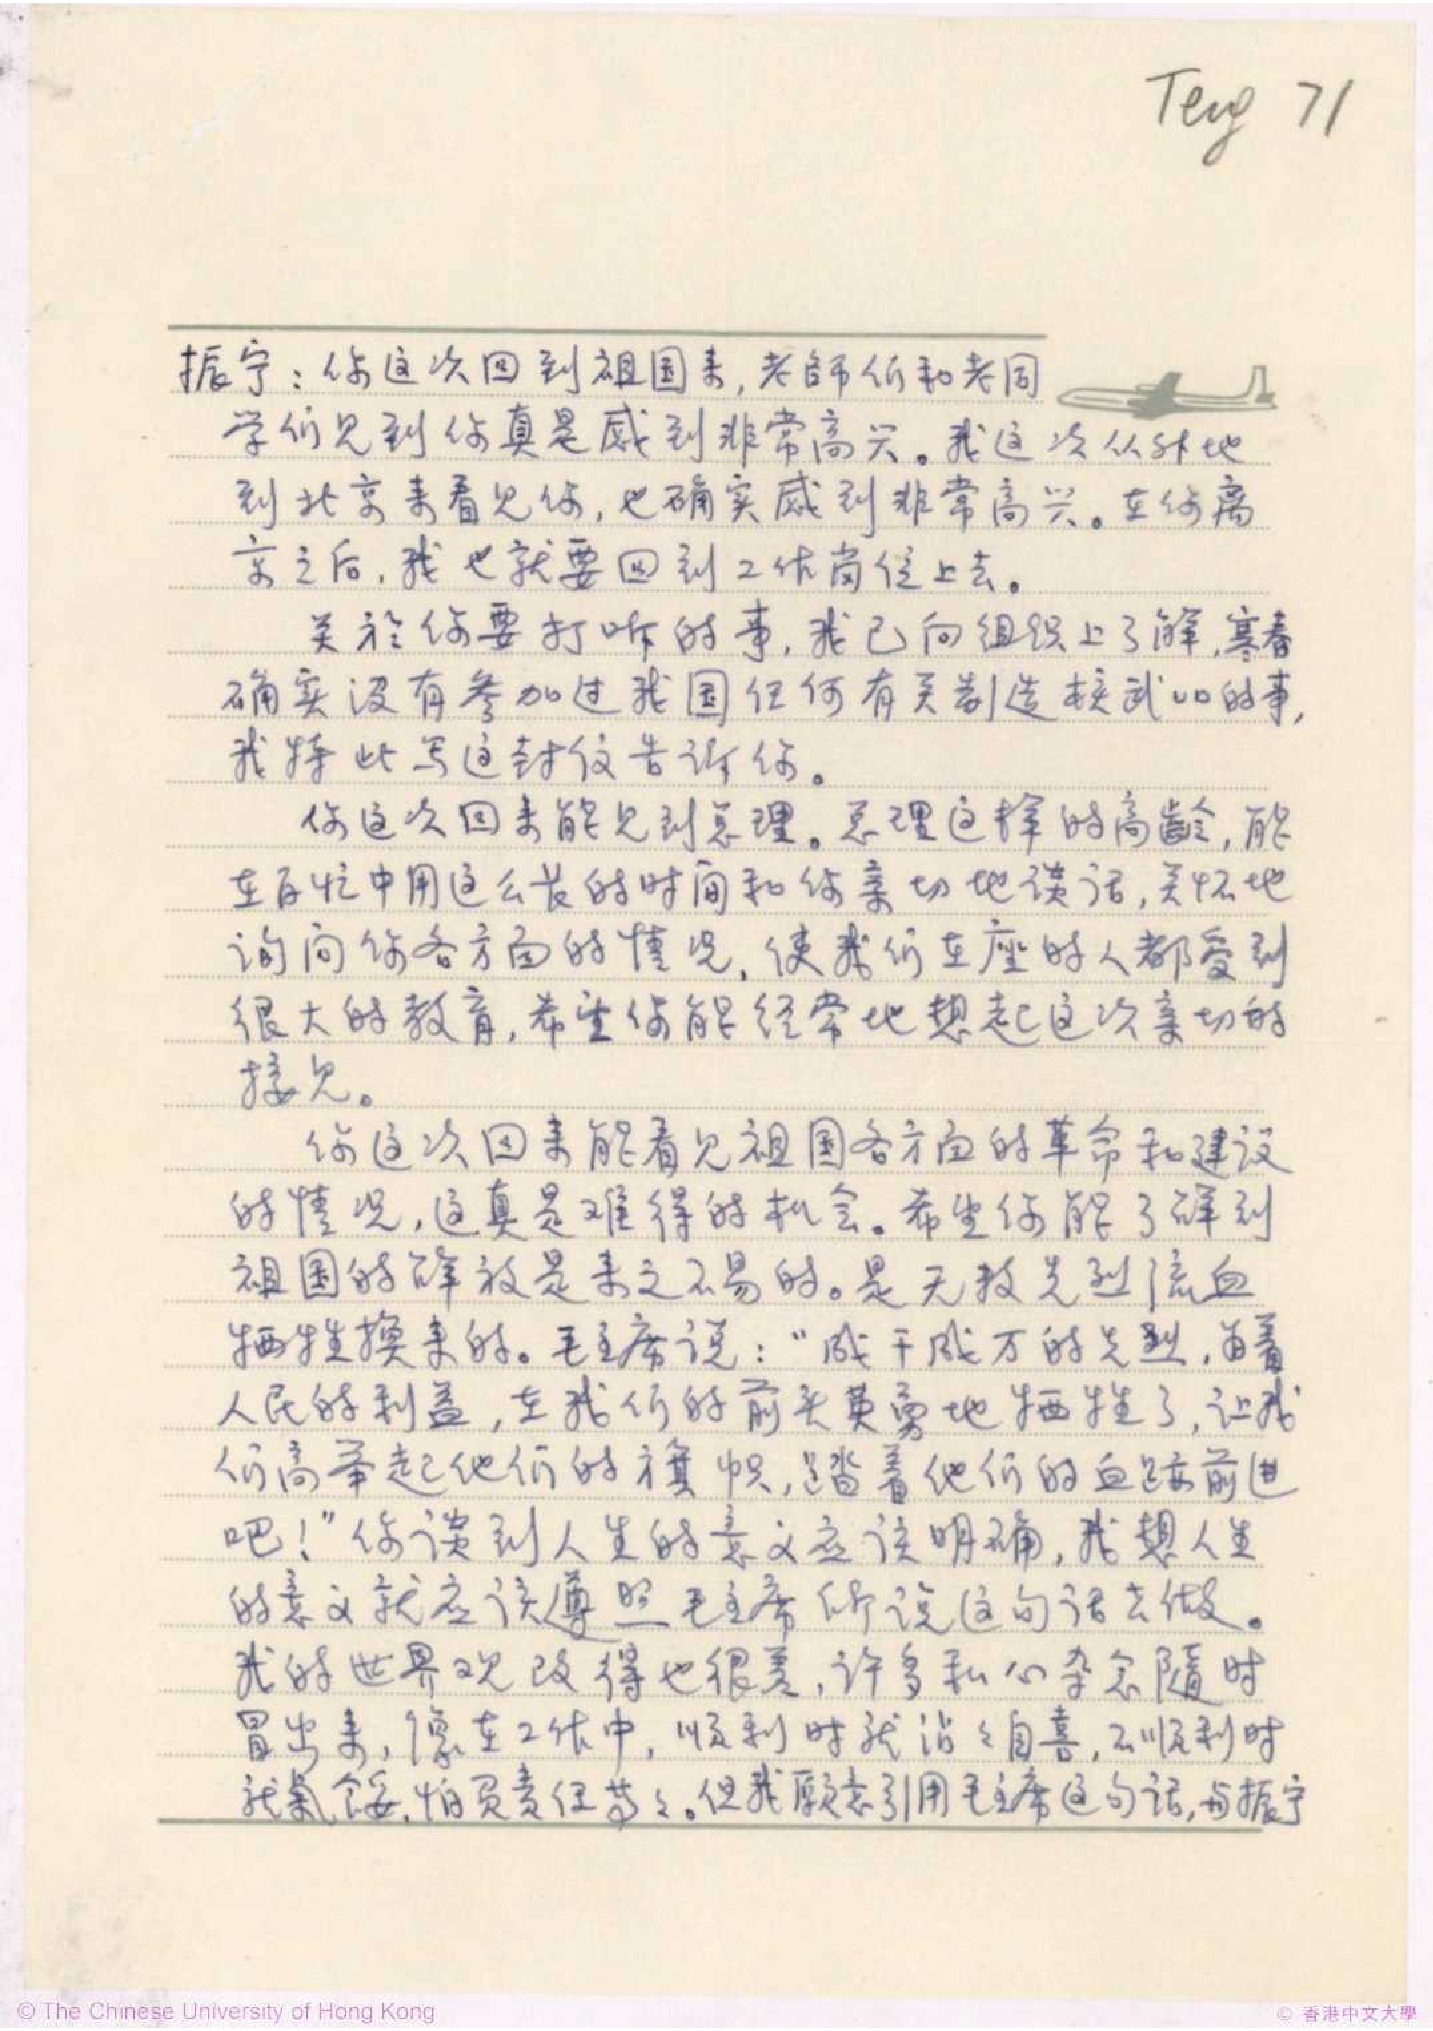 Teng 71
振宁：你这次回到祖国来，老師们和老同
学们见到你真是感到非常高兴。我这次从外地
到北京来看见你，也确实感到非常高兴。在你离
京之后，我也就要回到工作岗位上去。
关於你要打听的事，我已向组织上了解，寒春
确实没有参加过我国任何有关制造核武口的事，
我特此写这封信告诉你。
你这次回来能见到总理。总理这样的高齡，能
在百忙中用这么长的时间和你亲切地谈话，关怀地
询问你各方面的情况，使我们在座的人都受到
很大的教育，希望你能经常地想起这次亲切的
接见。
你这次回来能看见祖国各方面的革命和建设
的情况，这真是难得的机会。希望你能了解到
祖国的解放是来之不易的。是无数先烈流血
牺牲换来的。毛主席说："成千成万的先烈，为着
人民的利益，在我们的前头英勇地牺牲了，让我
们高举起他们的旗帜，踏着他们的血跡前进
吧！"你谈到人生的意义应该明确，我想人生
的意义就应该遵照毛主席所说这句话去做。
我的世界观改得也很差，许多私心杂念随时
冒出来，像在工作中，顺利时就沾々自喜，不顺利时
就氣餒，怕负责任等々。但我愿意引用毛主席这句话，与振宁
© The Chinese University of Hong Kong
© 香港中文大學